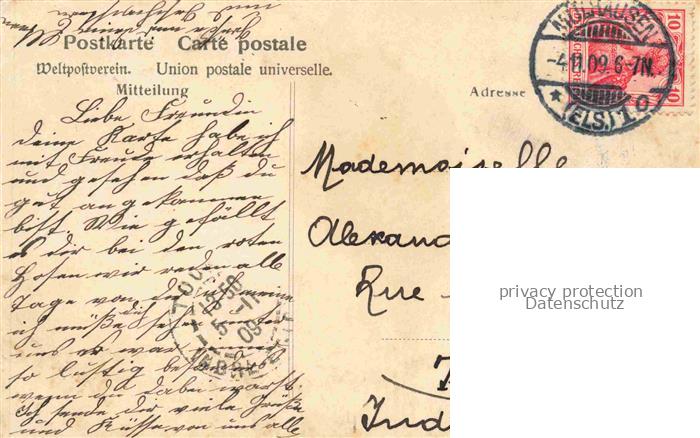 Postkarte Carte postale
Weltpostverein. Union postale universelle.
Mitteilung
Adresse
MÜLHAUSEN
-4.11.09.6-7N.
* (ELS.) 1 o
10
10
Liebe Freundin
deine Karte habe ich
mit Freude erhalten
und gesehen daß du
gut angekommen
bist. Wie gefällt
es dir bei den roten
Hosen wir reden alle
Tage von dir
ich müße
uns es war immer
so lustig
wenn du dabei warst.
Ich sende dir viele Grüße
und Küsse von uns alle
Mademoiselle
Alexand
Rue
Ind
5 -11
09
privacy protection
Datenschutz